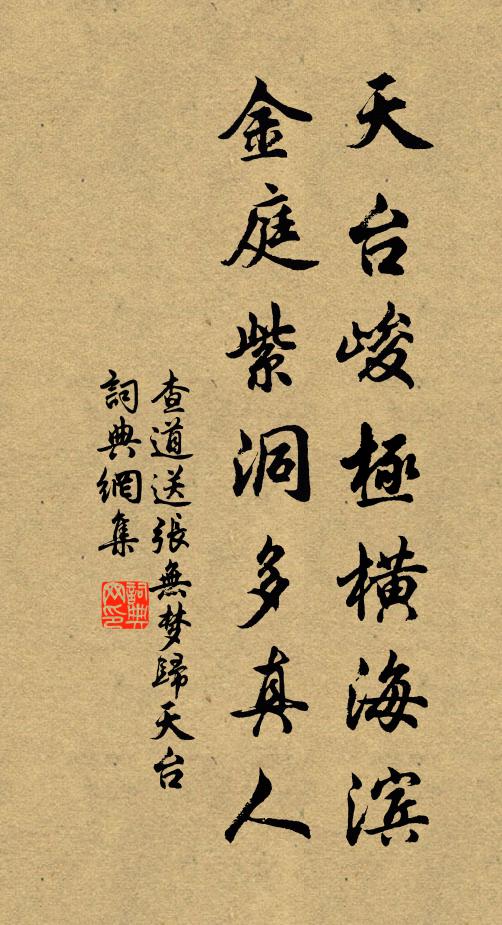 天台峻極橫海滨
金庭紫洞多真人
查道送張無梦歸天台
詞典網集
詞典网印